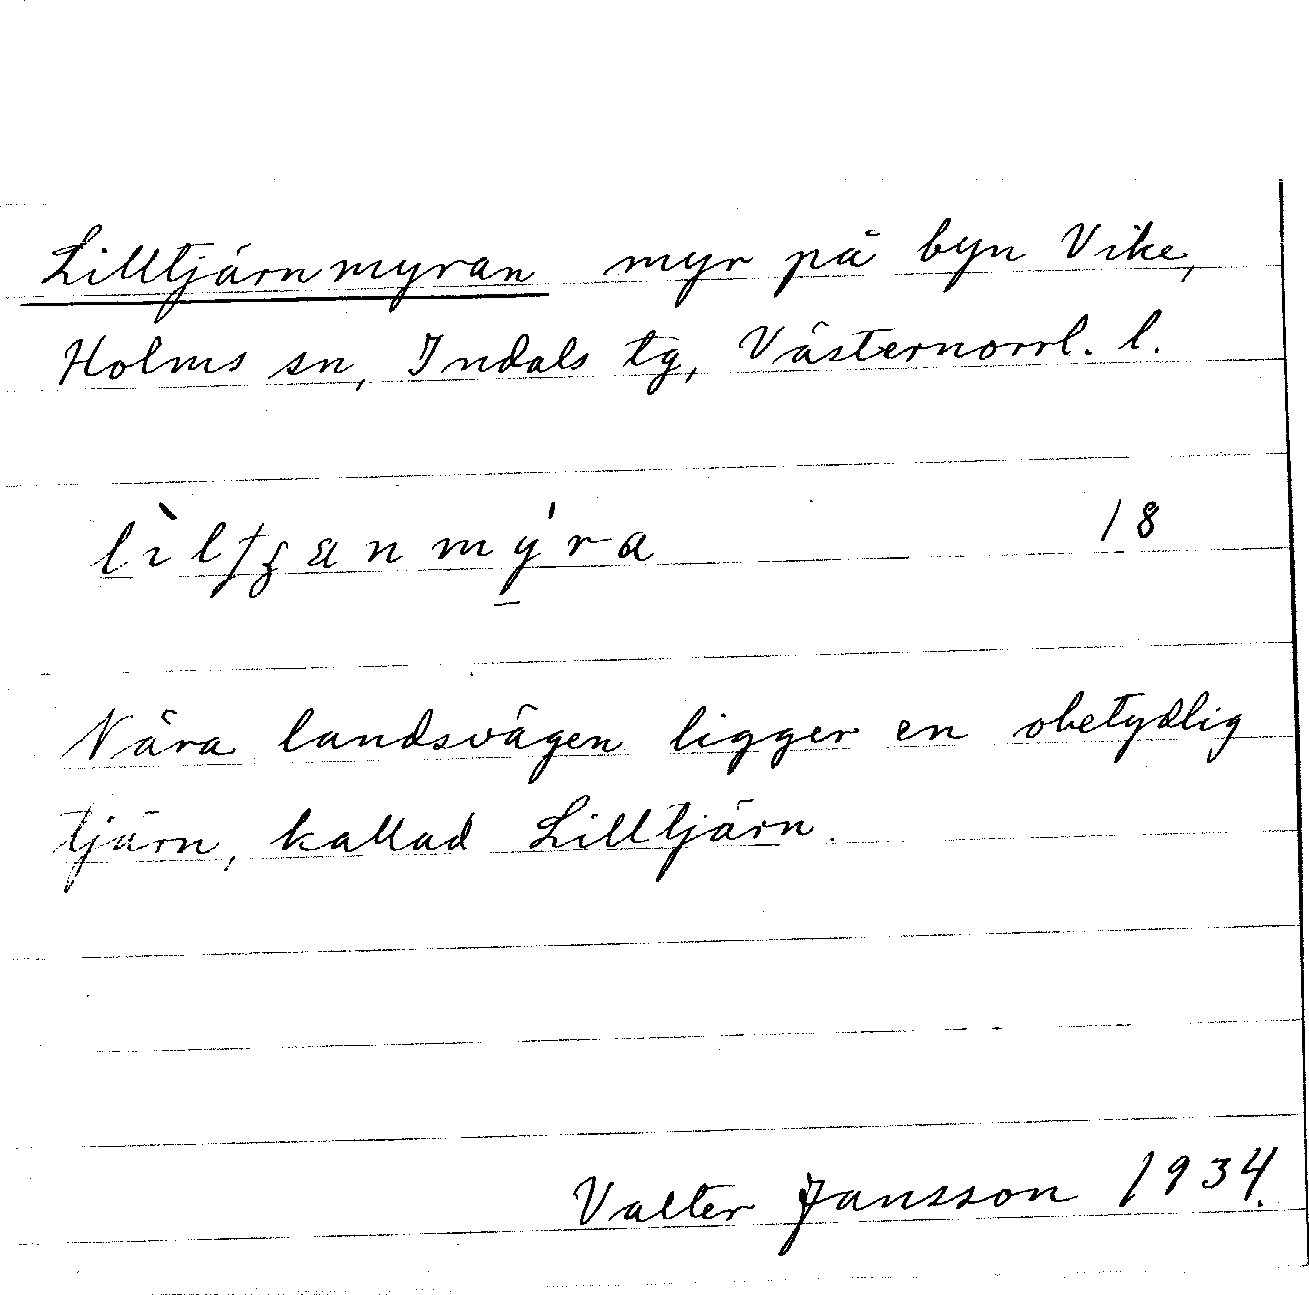 Lilltjärnmyran myr på byn Vike,
Holms sn, Indals tg, Västernorrl. l.
18
Nära landsvägen ligger en obetydlig
tjärn, kallad Lilltjärn.
Valter Jansson 1934.